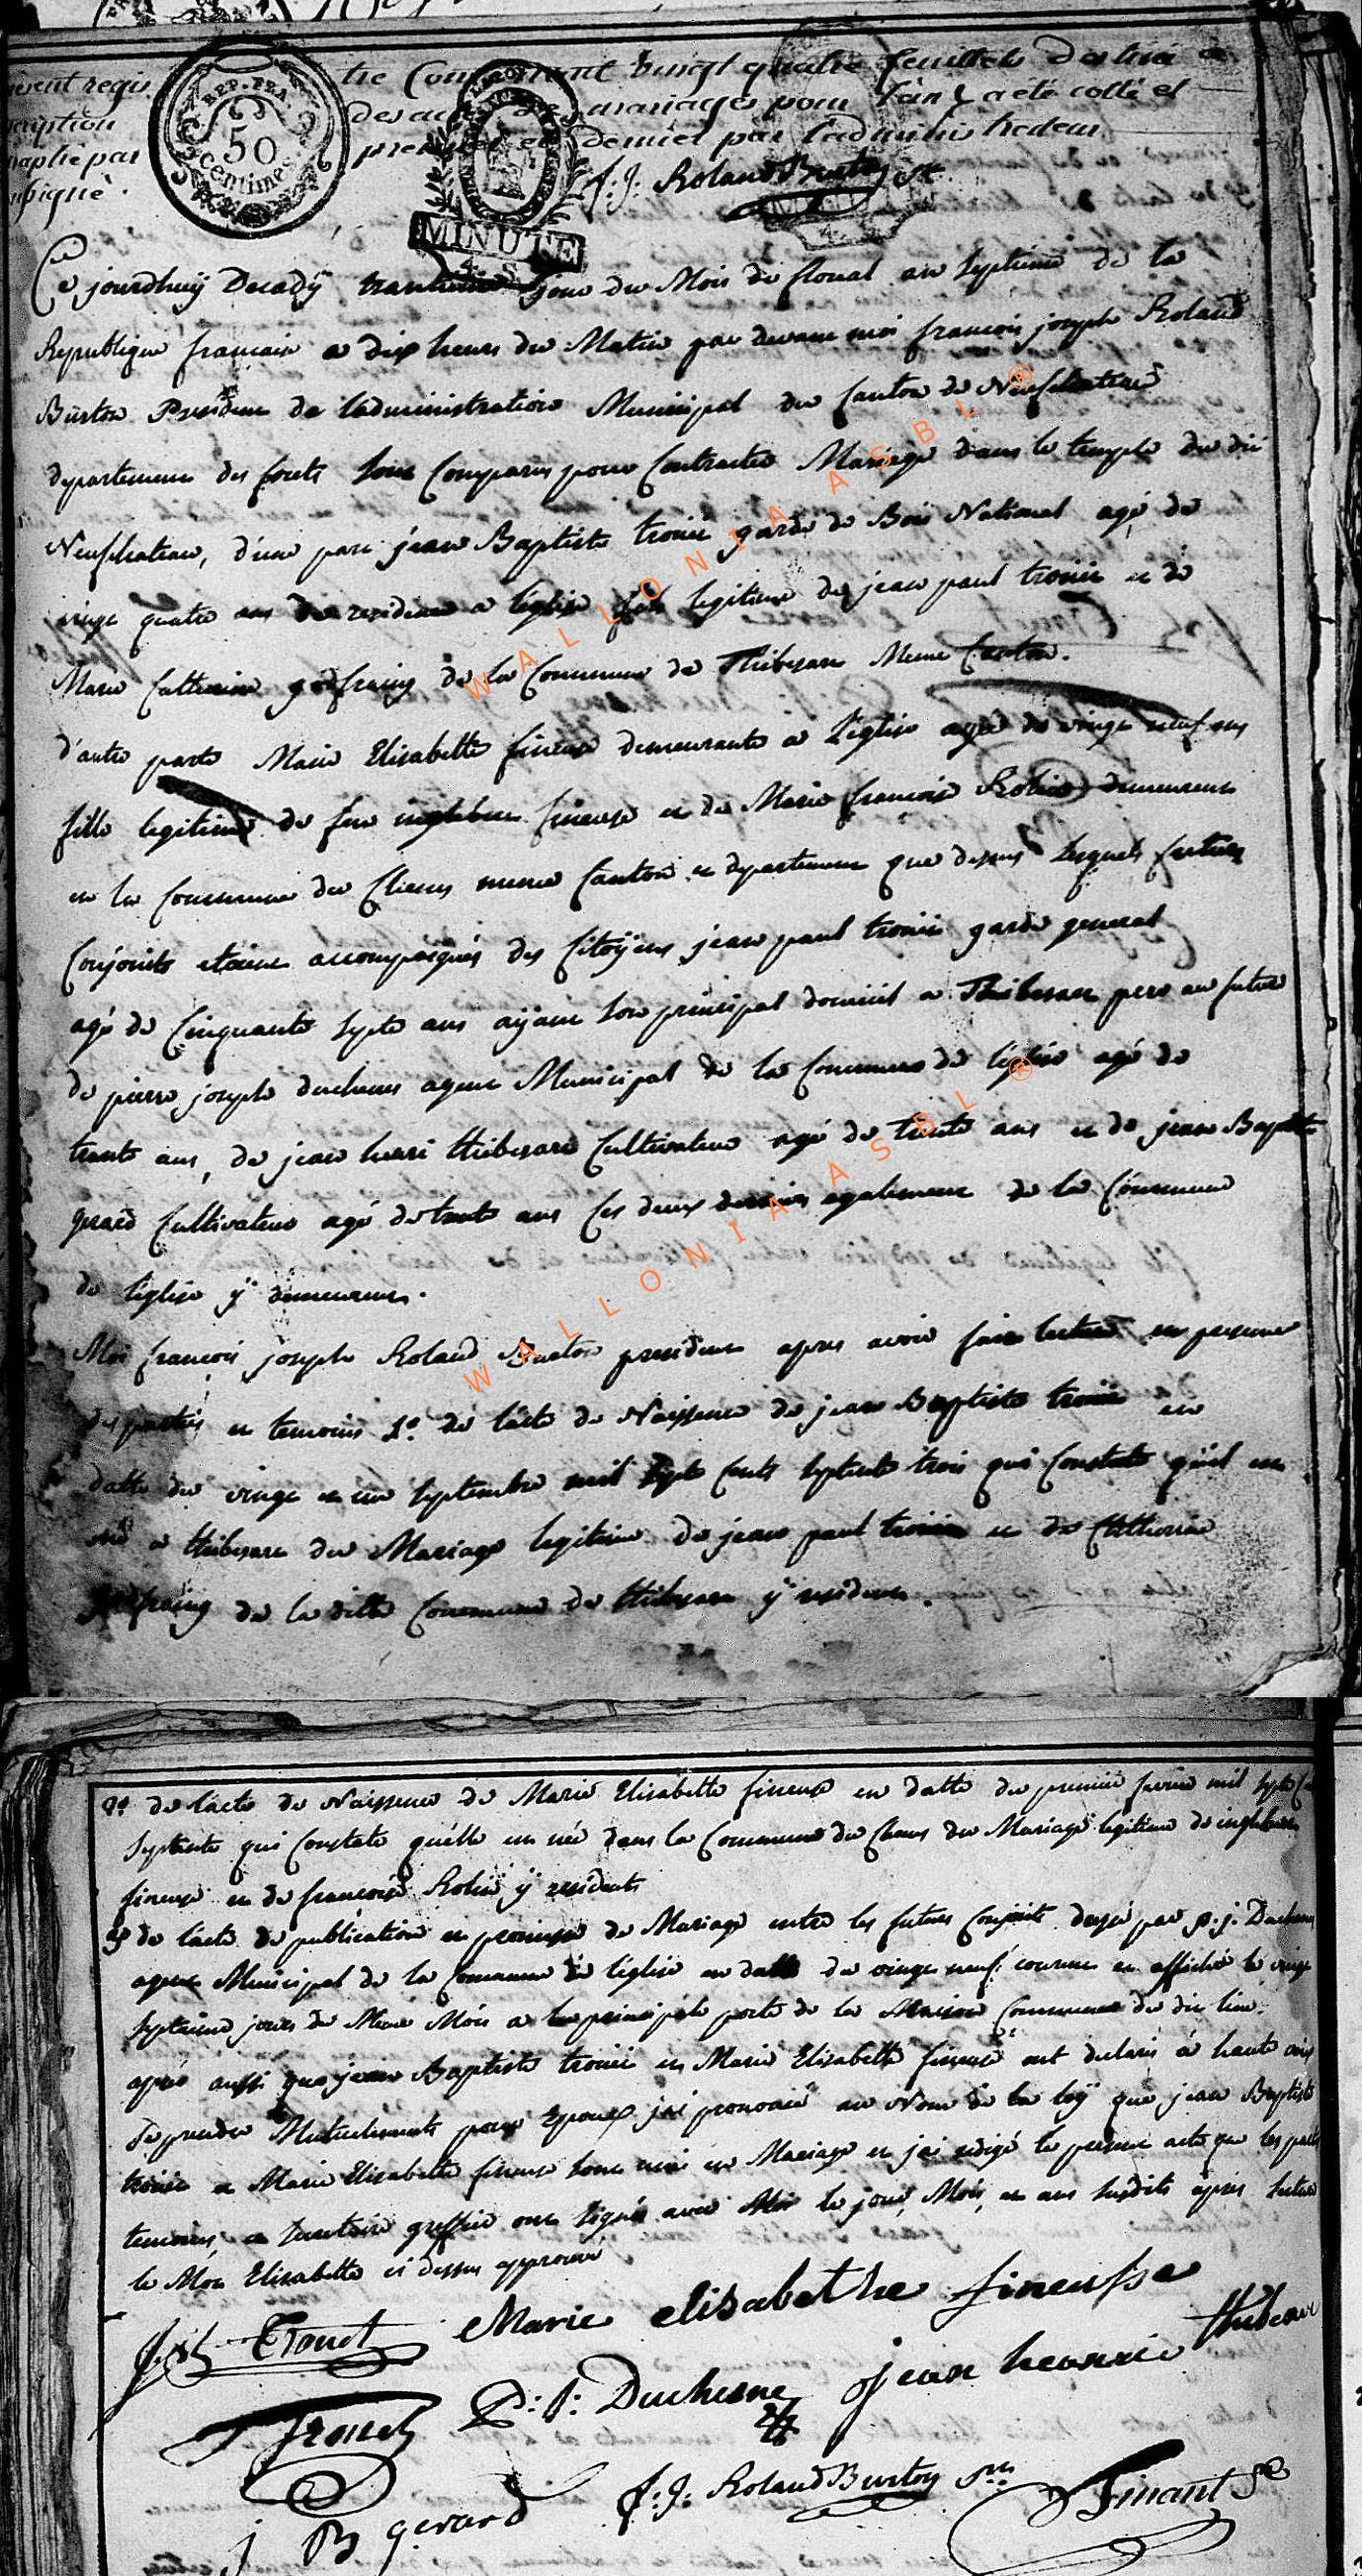 tre Contenant vingt quatre feuillets destiné a
des actes de mariages pour l'an 7 a été collé et
premier et dernier par l'administrateur
REP. FRA.
50
Centimes
F. J. Roland Burton
MINUTE
Ce jourdhuÿ Decadÿ jour du Mois de floreal an septieme de la
Republique francaise a dix heures du Matin par devant moi francois joseph Roland
Burton President de ladministration Municipal du Canton de Neufchateau
departement des forets sont Comparus pour Contracter Mariage dans le temple du dit
Neufchateau, d'une part jean Baptiste garde de Bois National agé de
vingt quatre ans de residence a léglise fils legitime de jean paul et de
Marie Catherine godfraing de la Commune de Thibesart Meme Canton.
d'autre parte Marie Elisabette fineuse demeurante a L'eglise agée de vingt neuf ans
fille legitime de feu inglebert fineuse et de Marie francoise Robin demeurent
en la Commune de meme Canton et departement que dessus lesquels futurs
Conjoints etoient accompagnés des Citoÿens jean paul garde general
agé de Cinquante septe ans aÿant son principal domicil a Thibesart pere au futur
de pierre joseph duchene agent Municipal de la Commune de léglise agé de
trente ans, de jean henri thibesart Cultivateur agé de trente ans et de jean Baptiste
gerard Cultivateur agé de trente ans Ces deux derniers egalement de la Commune
de léglise ÿ demeurans.
Moi francois joseph Roland Burton president apres avoir fait lecture en presence
des parties et temoins 1° de lacte de Naissance de jean Baptiste en
datte du vingt et un septembre mil septe cents septente trois qui Constate quil est
né a thibesart du Mariage legitime de jean paul et de Catherine
godfraing de la ditte Commune de thibesart ÿ residens.
2° de lacte de Naissance de Marie Elisabette fineuse en datte du premier mil septe
septente qui Constate quélle est née dans la Commune de du Mariage legitime de inglebert
fineuse et de francoise Robin ÿ residents
3° de lacte de publication et promesse de Mariage entre les futurs Conjoints par p. j. Duchene
agent Municipal de la Commune de léglise en datte du vingt neuf courant et affichée le vingt
septieme jours du Meme Mois a la principale porte de la Maison Commune du dit lieu.
après aussi que jean Baptiste et Marie Elisabette fineuse ont declarés à haute voix
se prendre Mutuelements pour Epoux j'ai prononcé au Nom de la loÿ que jean Baptiste
et Marie Elisabette fineuse sont unis en Mariage et j'ai redigé le present acte que les parties
temoins et secretaire greffier ont signés avec Moi le jour, Mois, et ans susdits après lecture
le Mot Elisabette ci dessus approuvé
Marie elisabethe fineusse
P: J: Duchesne
jean henrri thibesar
J B gerard
F. J. Roland Burton
Finant
WALLONIA ASBL ®
WALLONIA ASBL ®